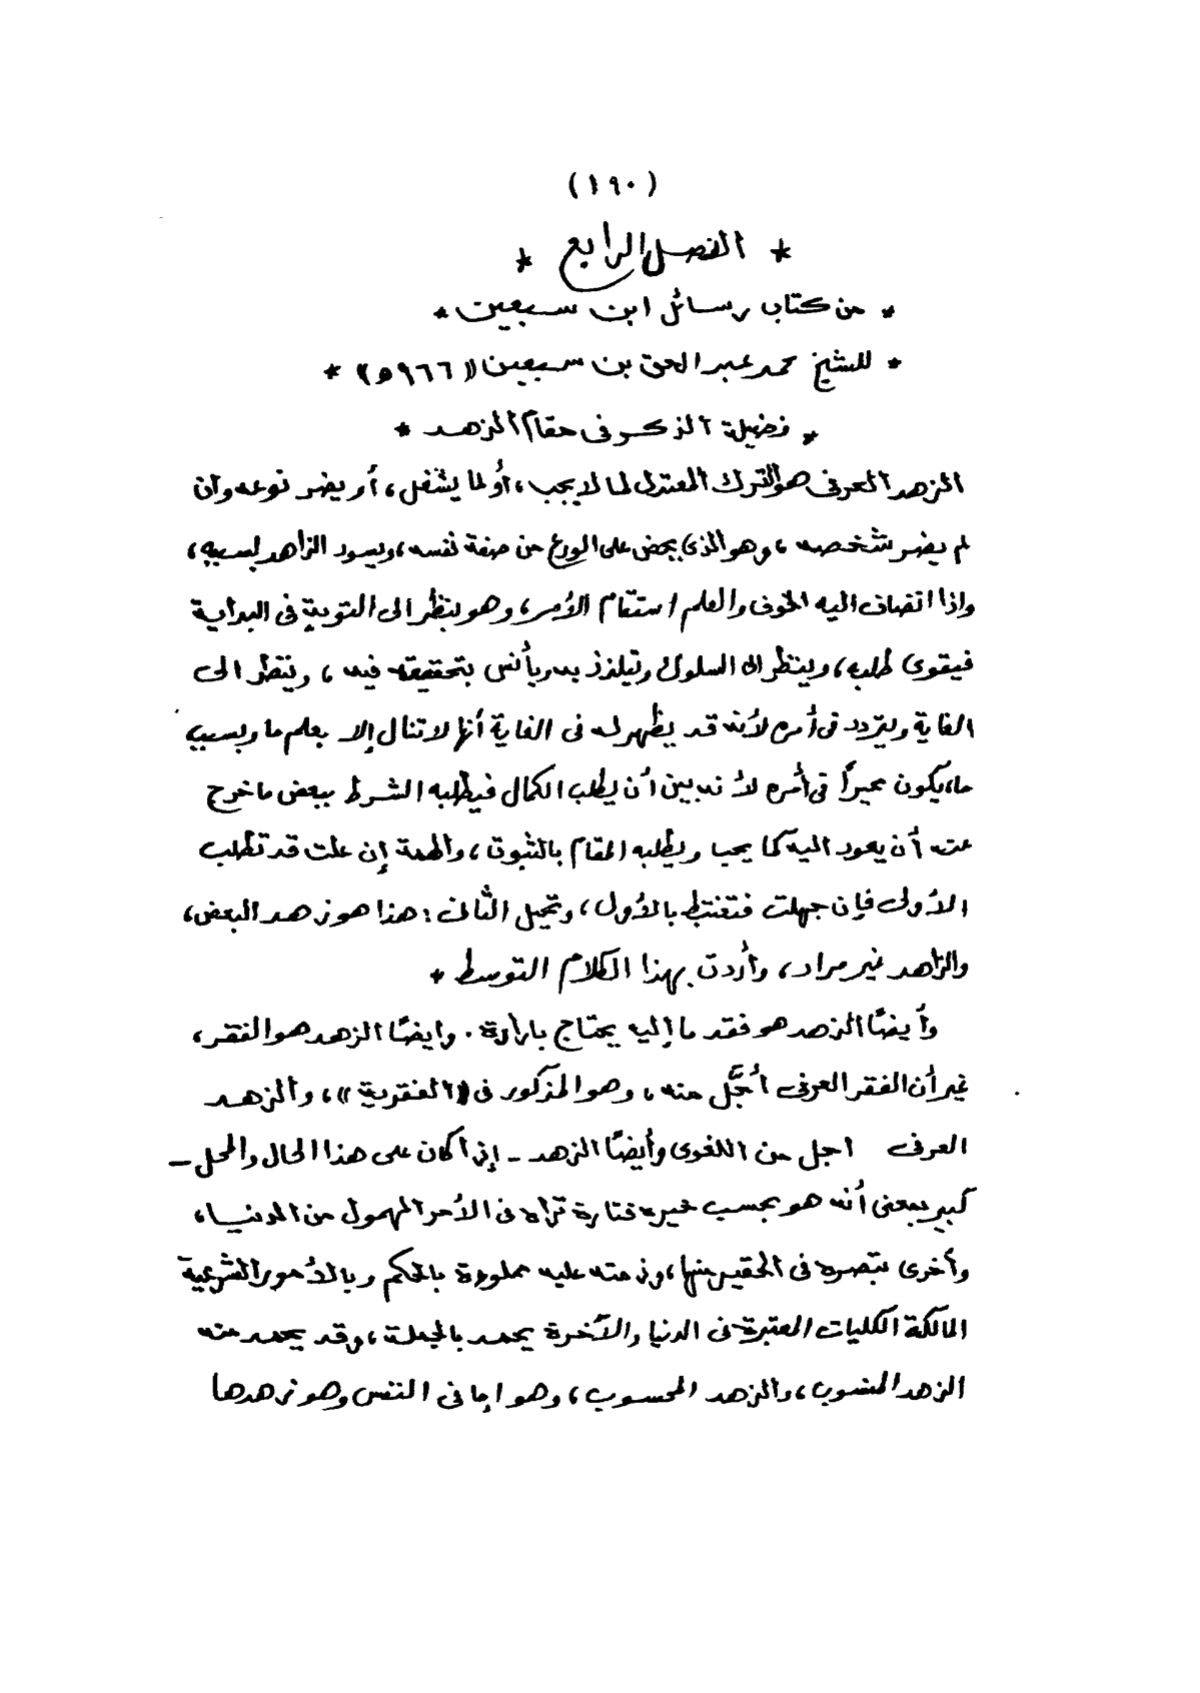 (١٩٠)
* الفصل الرابع *
* من كتاب رسائل ابن سبعين *
* للشيخ محمد عبد الحق بن سبعين ((٩٦٦ه)) *
* فضيلة الذكر فى مقام الزهد *
الزهد العرفى هو الترك المعتدل لما لا يجب، أو لما يشغل، أو يضر نوعه وان
لم يضر شخصه، وهو الذى يحض على الورع من صفة نفسه، ويسود الزاهد بسببه،
واذا انضاف اليه الخوف والعلم استقام الأمر، وهو ينظر الى التوبة فى البداية
فيقوى طلبه، وينظر الى السلوك ويتلذذ به ويأنس بتحقيقه فيه، وينظر الى
الغاية ويتردد فى أمره لأنه قد يظهر له فى الغاية أنها لا تنال إلا بعلم ما وبسبب
ما، يكون محيراً فى أمره لأنه بين أن يطلب الكمال فيطلبه الشرط ببعض ما خرج
عنه أن يعود اليه كما يحب ويطلبه المقام بالثبوت، والهمة إن علت قد تطلب
الأولى فإن جهلت فتغتبط بالأول، وتحيل الثانى: هذا هو زهد البعض،
والزاهد غير مراد، وأردت بهذا الكلام التوسط *
وأيضًا الزهد هو فقد ما إليه يحتاج بارادة. وايضًا الزهد هو الفقر،
غير أن الفقر العرفى أجَّل منه، وهو المذكور فى ((الفقرية))، والزهد
العرفى اجل من اللغوى وأيضًا الزهد - إذا كان على هذا الحال والمحل -
كبير بمعنى أنه هو بحسب ضميره فتارة تراه فى الأمر المهمول من الدنيا،
وأخرى تبصره فى الحقير منها، وذمته عليه مملوءة بالحكم وبالأمور الشرعية
المالكة الكليات المعتبرة فى الدنيا والآخرة يحمد بالجملة، وقد يحمد منه
الزهد المنسوب، والزهد المحسوب، وهو إما فى النفس وهو زهدها